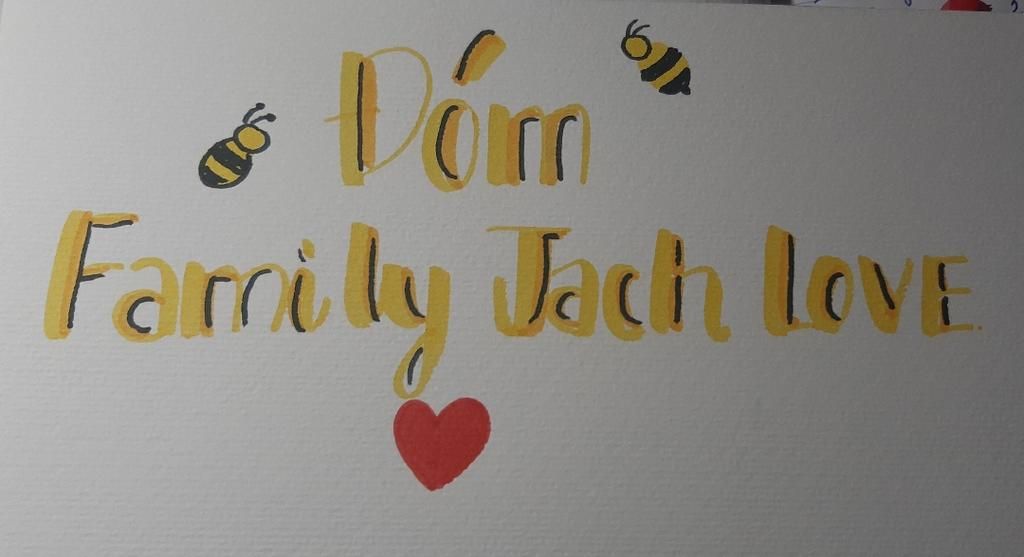 Dóm
Family Jach LOVE